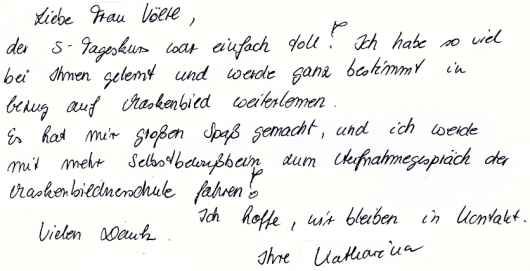 Liebe Frau Völte,
der 5-Tageskurs war einfach toll! Ich habe so viel
bei Ihnen gelernt und werde ganz bestimmt in
bezug auf Maskenbild weiterlernen.
Es hat mir großen Spaß gemacht, und ich werde
mit mehr Selbstbewußtsein zum Aufnahmegespräch der
Maskenbildnerschule fahren!
Ich hoffe, wir bleiben in Kontakt.
Vielen Dank.
Ihre Katharina